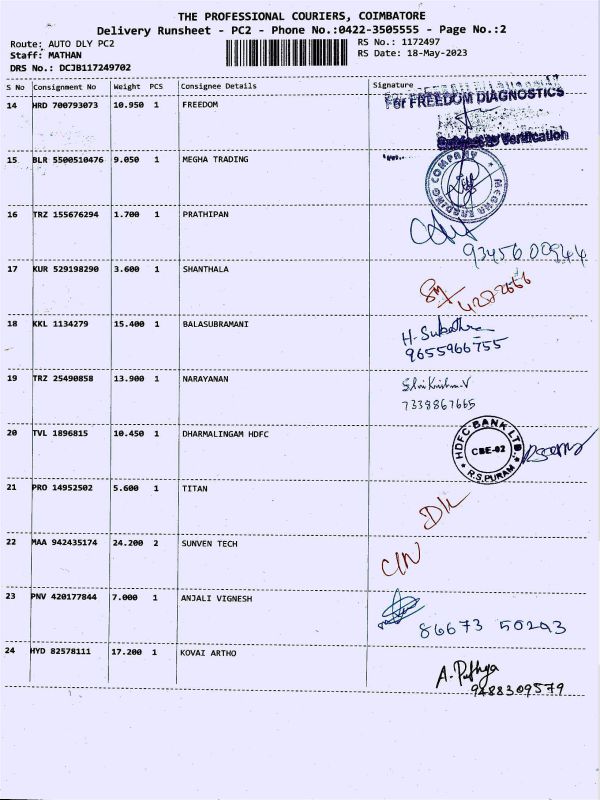 THE PROFESSIONAL COURIERS, COIMBATORE
Delivery Runsheet - PC2 - Phone No.:0422-3505555 - Page No.:2
Route: AUTO DLY PC2 RS No.: 1172497
Staff: MATHAN RS Date: 18-May-2023
DRS No.: DCJB117249702
S No Consignment No Weight PCS Consignee Details Signature
14 HRD 700793073 10.950 1 FREEDOM For FREEDOM DIAGNOSTICS
Subject to Verification
15 BLR 5500510476 9.050 1 MEGHA TRADING MEGHA TRADING COMPANY
16 TRZ 155676294 1.700 1 PRATHIPAN
9345600944
17 KUR 529198290 3.600 1 SHANTHALA
18 KKL 1134279 15.400 1 BALASUBRAMANI H. Subathra
9655966755
19 TRZ 25490858 13.900 1 NARAYANAN Shri Krishna.V
7339867665
20 TVL 1896815 10.450 1 DHARMALINGAM HDFC HDFC BANK LTD.
CBE-02
R.S.PURAM
21 PRO 14952502 5.600 1 TITAN
22 MAA 942435174 24.200 2 SUNVEN TECH
23 PNV 420177844 7.000 1 ANJALI VIGNESH
86673 50293
24 HYD 82578111 17.200 1 KOVAI ARTHO
9488309579